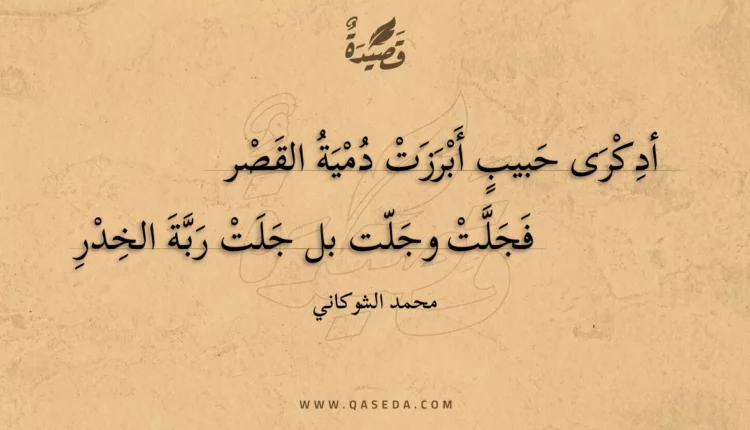 قَصِيدَةٌ
أدِكْرَى حَبيبٍ أَبْرَزَتْ دُمْيَةُ القَصْر
فَجَلَّتْ وجَلّت بل جَلَتْ رَبَّةَ الخِدْرِ
محمد الشوكاني
WWW.QASEDA.COM